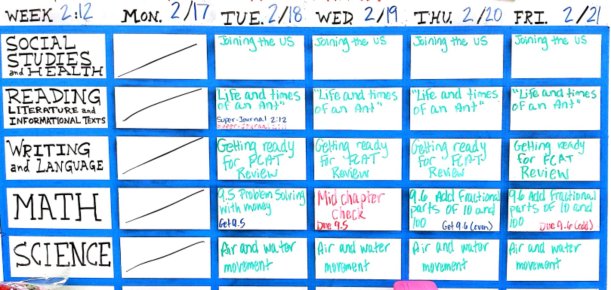 WEEK 2:12 MON. 2/17 TUE. 2/18 WED 2/19 THU. 2/20 FRI. 2/21
SOCIAL
STUDIES
and HEALTH
Joining the US
Joining the US
Joining the US
Joining the US
READING
LITERATURE and
INFORMATIONAL TEXTS
Life and times
of an Ant"
Super-Journal 2:12
"Life and times
of an Ant"
"Life and times
of an Ant"
"Life and times
of an Ant"
WRITING
and LANGUAGE
Getting ready
for FCAT
Review
Getting ready
for FCAT
Review
Getting ready
for FCAT
Review
Getting ready
for FCAT
Review
MATH
9.5 Problem Solving
with money
Get 9.5
Mid chapter
Check
Due 9.5
9.6 Add fractional
parts of 10 and
100
Get 9.6 (even)
9.6 Add fractional
parts of 10 and
100
Due 9.6 (odd)
SCIENCE
Air and water
movement
Air and water
movement
Air and water
movement
Air and water
movement